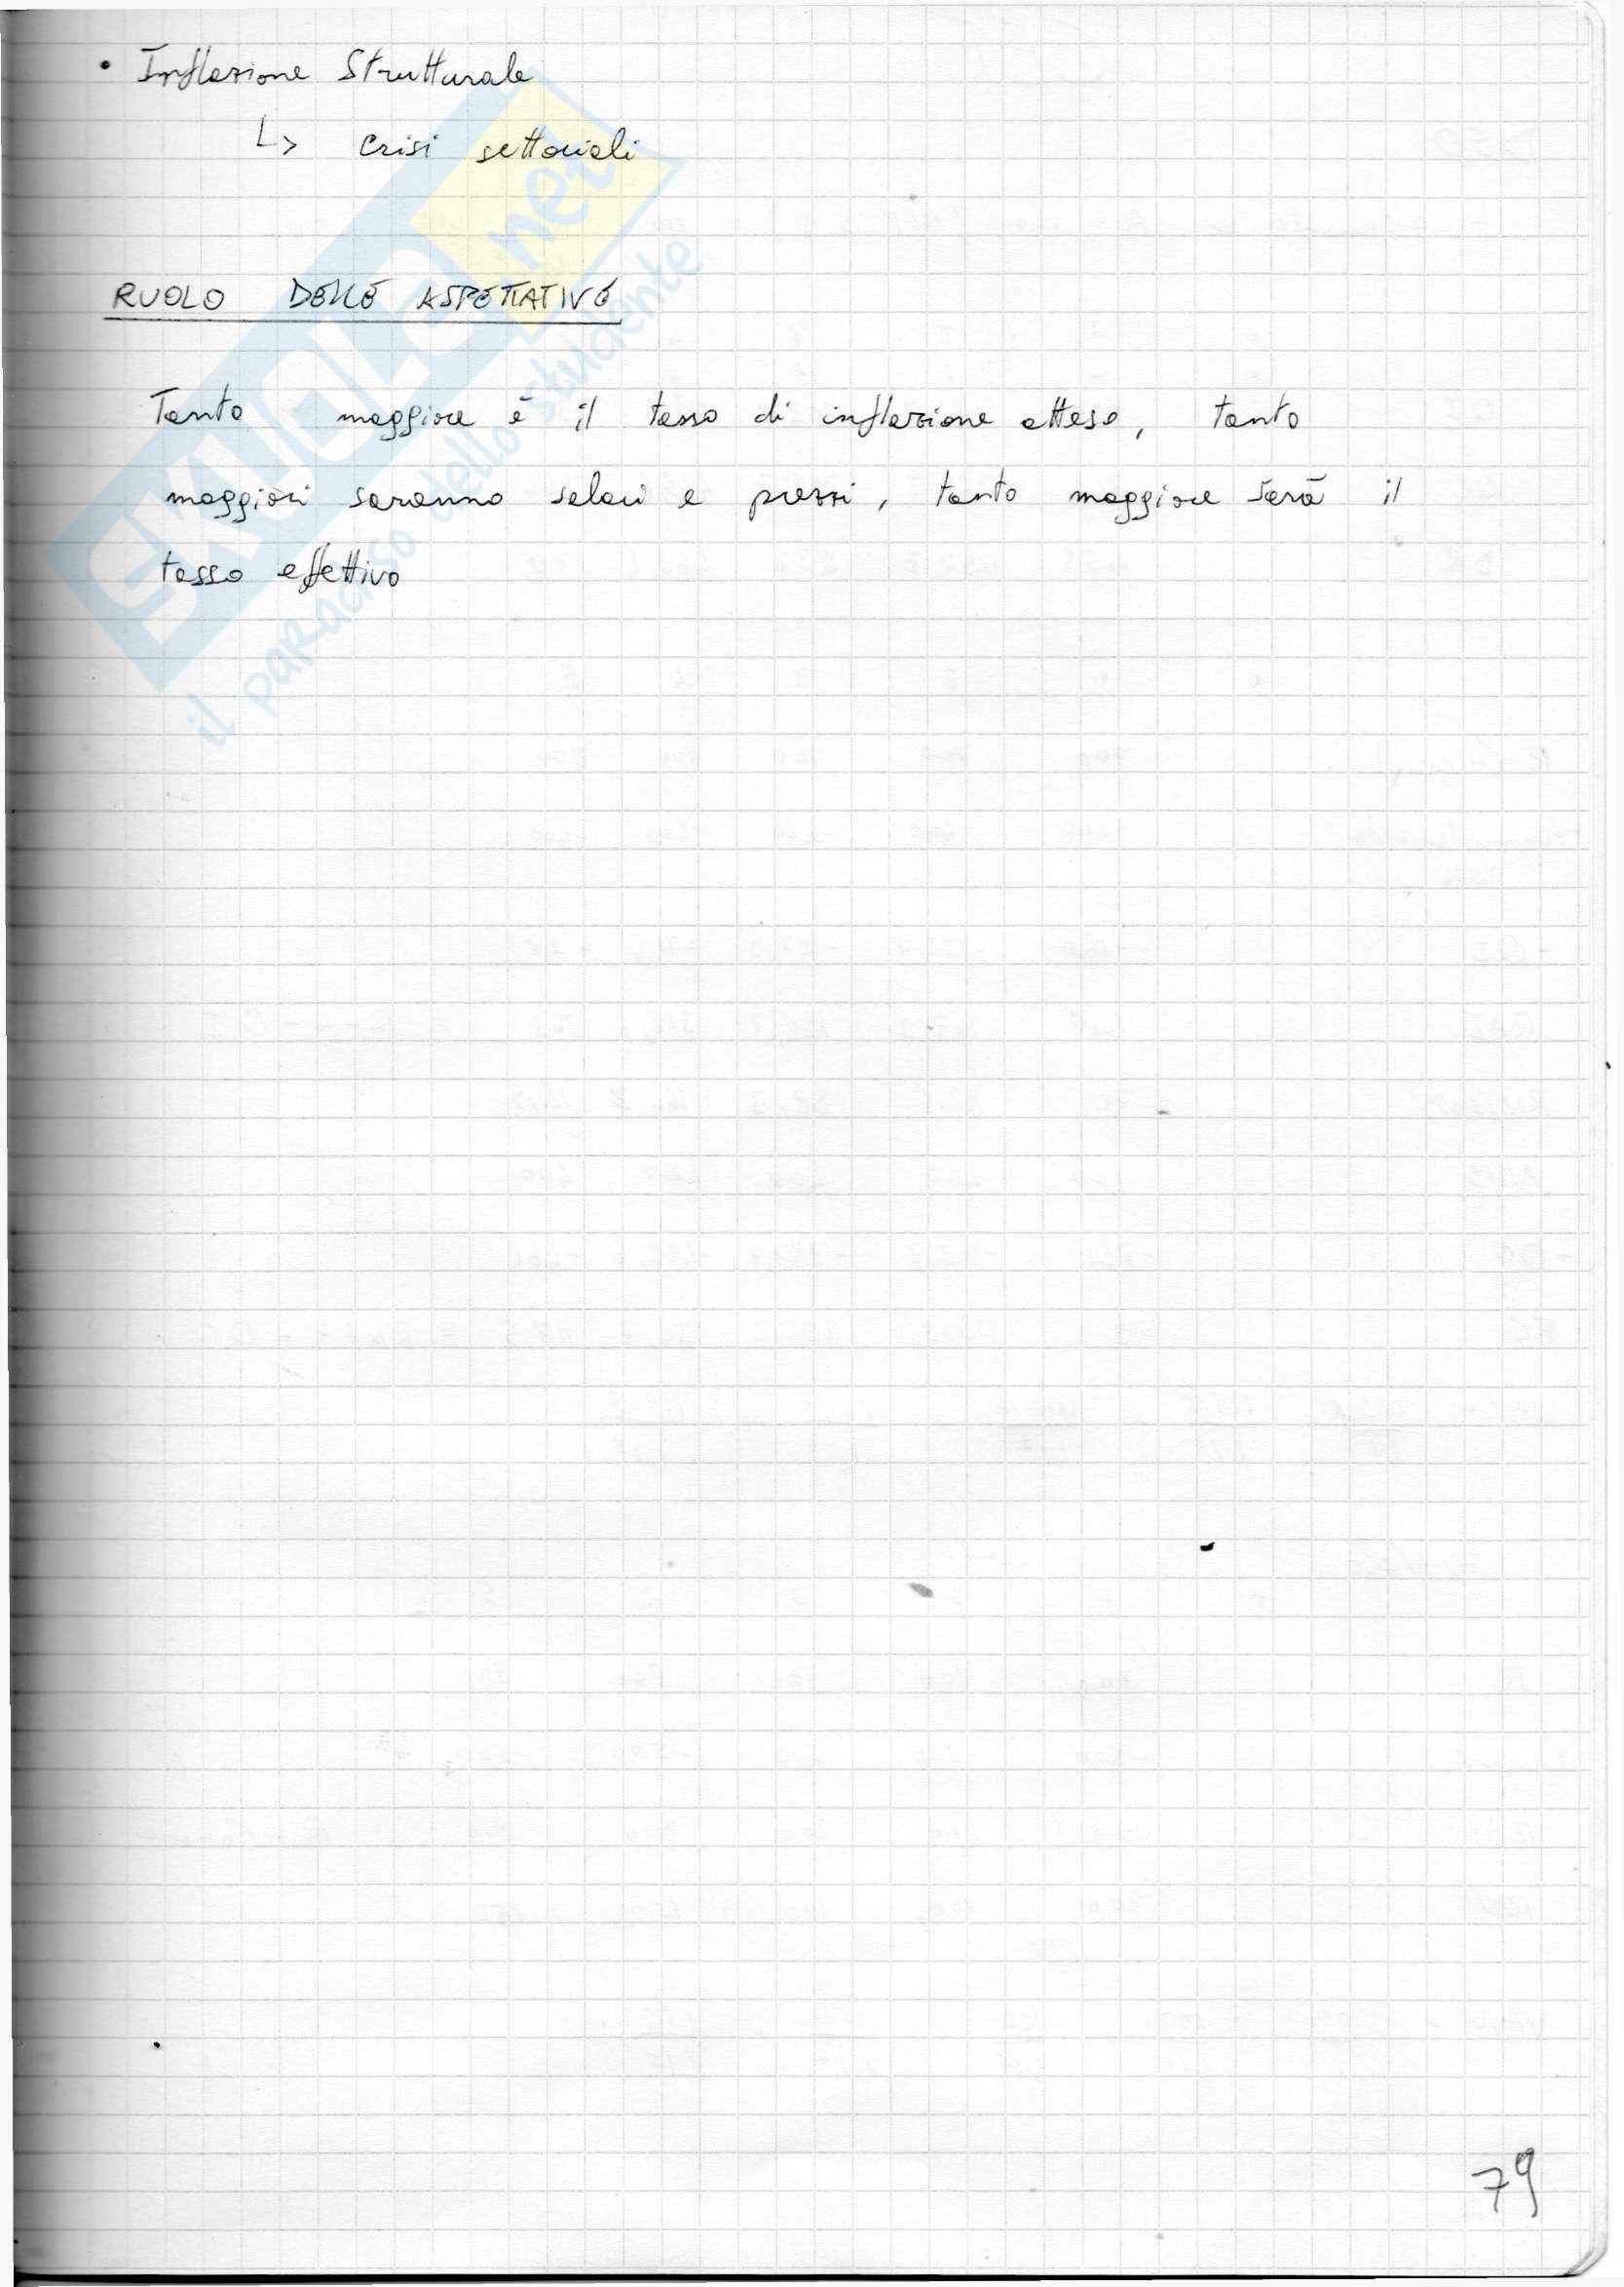 • Inflazione Strutturale
↳ Crisi settoriali
RUOLO DELLE ASPETTATIVE
Tanto maggiore è il tasso di inflazione atteso, tanto
maggiori saranno salari e prezzi, tanto maggiore sarà il
tasso effettivo
SKUOLA.net
il paradiso dello studente
79